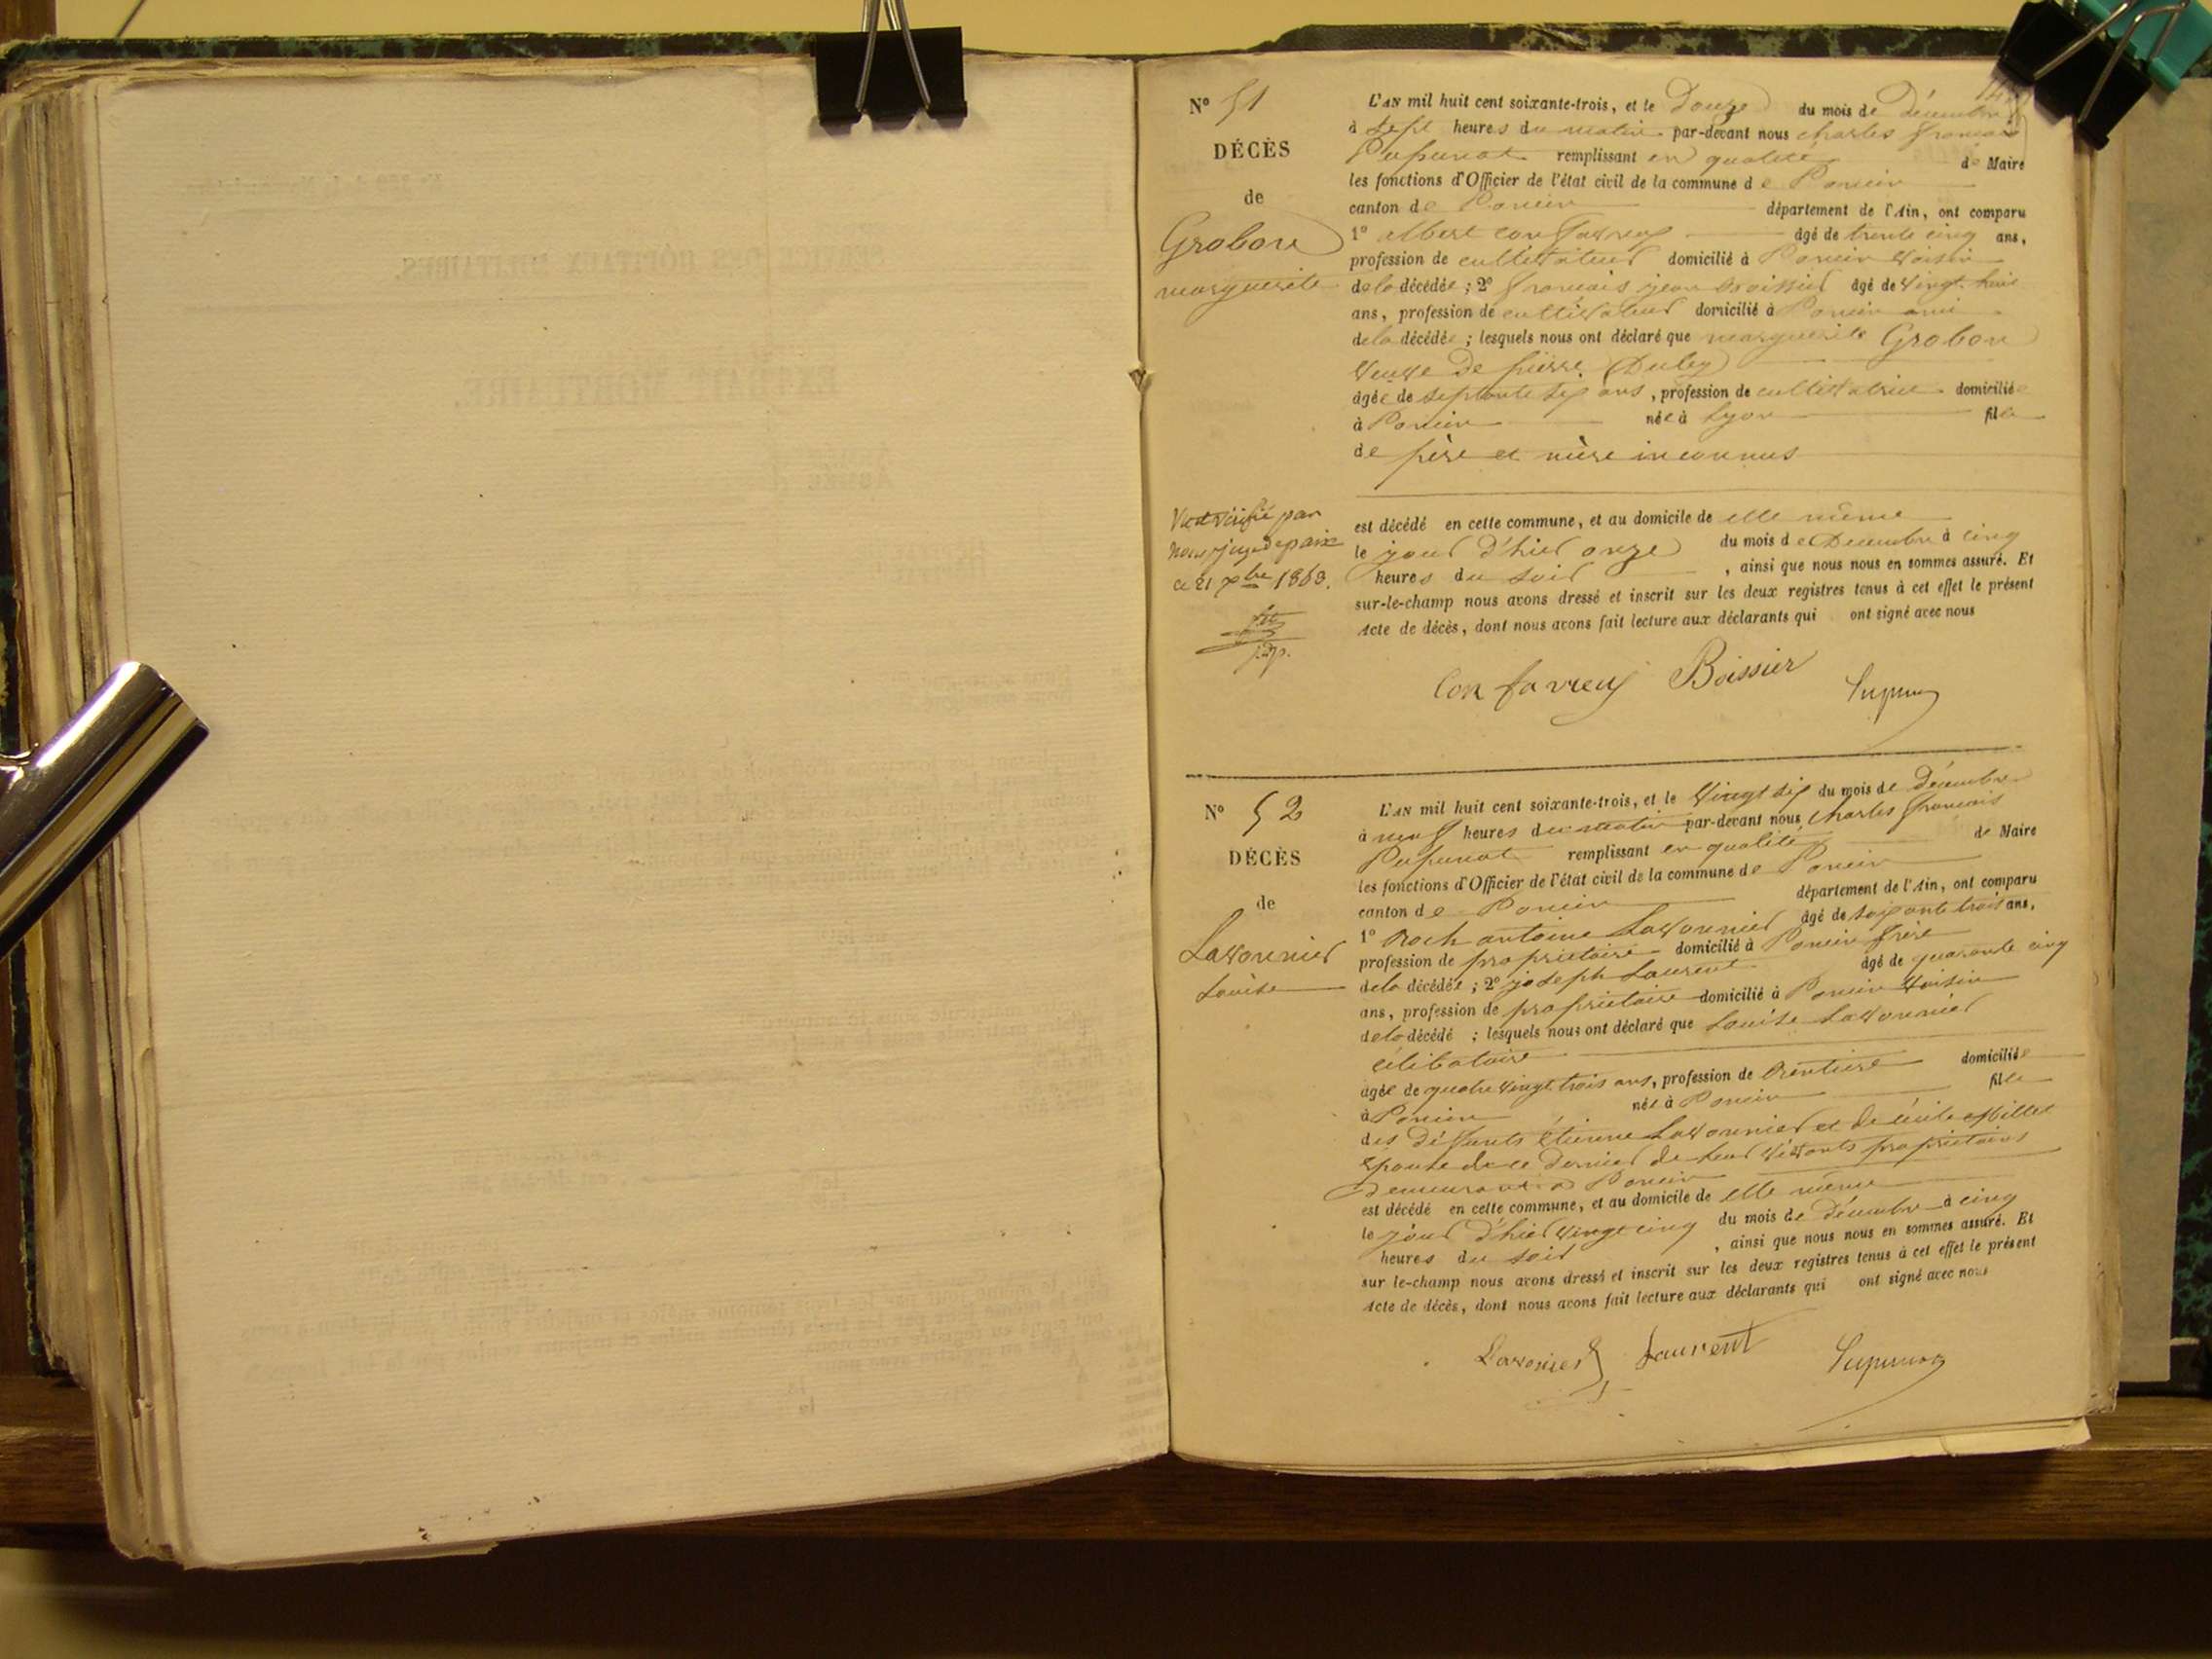 N° 51
DÉCÈS
de
Grobon
marguerite
L'AN mil huit cent soixante-trois, et le Douze du mois de Décembre
à sept heures du matin par-devant nous charles francois
Pupunat remplissant en qualité de Maire
les fonctions d'Officier de l'état civil de la commune de Poncin
canton de Poncin département de l'Ain, ont comparu
1° albert confavreux âgé de trente cinq ans,
profession de cultivateur domicilié à Poncin voisin
de la décédée ; 2° francois jean Boissier âgé de vingt huit
ans, profession de cultivateur domicilié à Poncin ami
de la décédée ; lesquels nous ont déclaré que marguerite Grobon
veuve de pierre Duley
âgée de septante six ans, profession de cultivatrice domiciliée
à Poncin née à Lyon fille
de père et mère inconnus
est décédé en cette commune, et au domicile de elle même
le jour d'hier onze du mois de Décembre à cinq
heures du soir , ainsi que nous nous en sommes assuré. Et
sur-le-champ nous avons dressé et inscrit sur les deux registres tenus à cet effet le présent
Acte de décès, dont nous avons fait lecture aux déclarants qui ont signé avec nous
Vu et vérifié par
nous juge de paix
ce 21 xbre 1863.
j.d.p.
Confavreux Boissier Pupunat
N° 52
DÉCÈS
de
Lavonnier
Louise
L'AN mil huit cent soixante-trois, et le vingt six du mois de Décembre
à neuf heures du matin par-devant nous charles francois
Pupunat remplissant en qualité de Maire
les fonctions d'Officier de l'état civil de la commune de Poncin
canton de Poncin département de l'Ain, ont comparu
1° Roch antoine Lavonnier âgé de soixante trois ans,
profession de propriétaire domicilié à Poncin frère
de la décédée ; 2° joseph Laurent âgé de quarante cinq
ans, profession de propriétaire domicilié à Poncin voisin
de la décédé ; lesquels nous ont déclaré que Louise Lavonnier
célibataire
âgée de quatre vingt trois ans, profession de Rentière domiciliée
à Poncin née à Poncin fille
des défunts étienne Lavonnier et de Cécile Millet
épouse de ce dernier de leur vivants propriétaires
demeurant à Poncin
est décédé en cette commune, et au domicile de elle même
le jour d'hier vingt cinq du mois de Décembre à cinq
heures du soir , ainsi que nous nous en sommes assuré. Et
sur le-champ nous avons dressé et inscrit sur les deux registres tenus à cet effet le présent
Acte de décès, dont nous avons fait lecture aux déclarants qui ont signé avec nous
Lavonier Laurent Pupunat